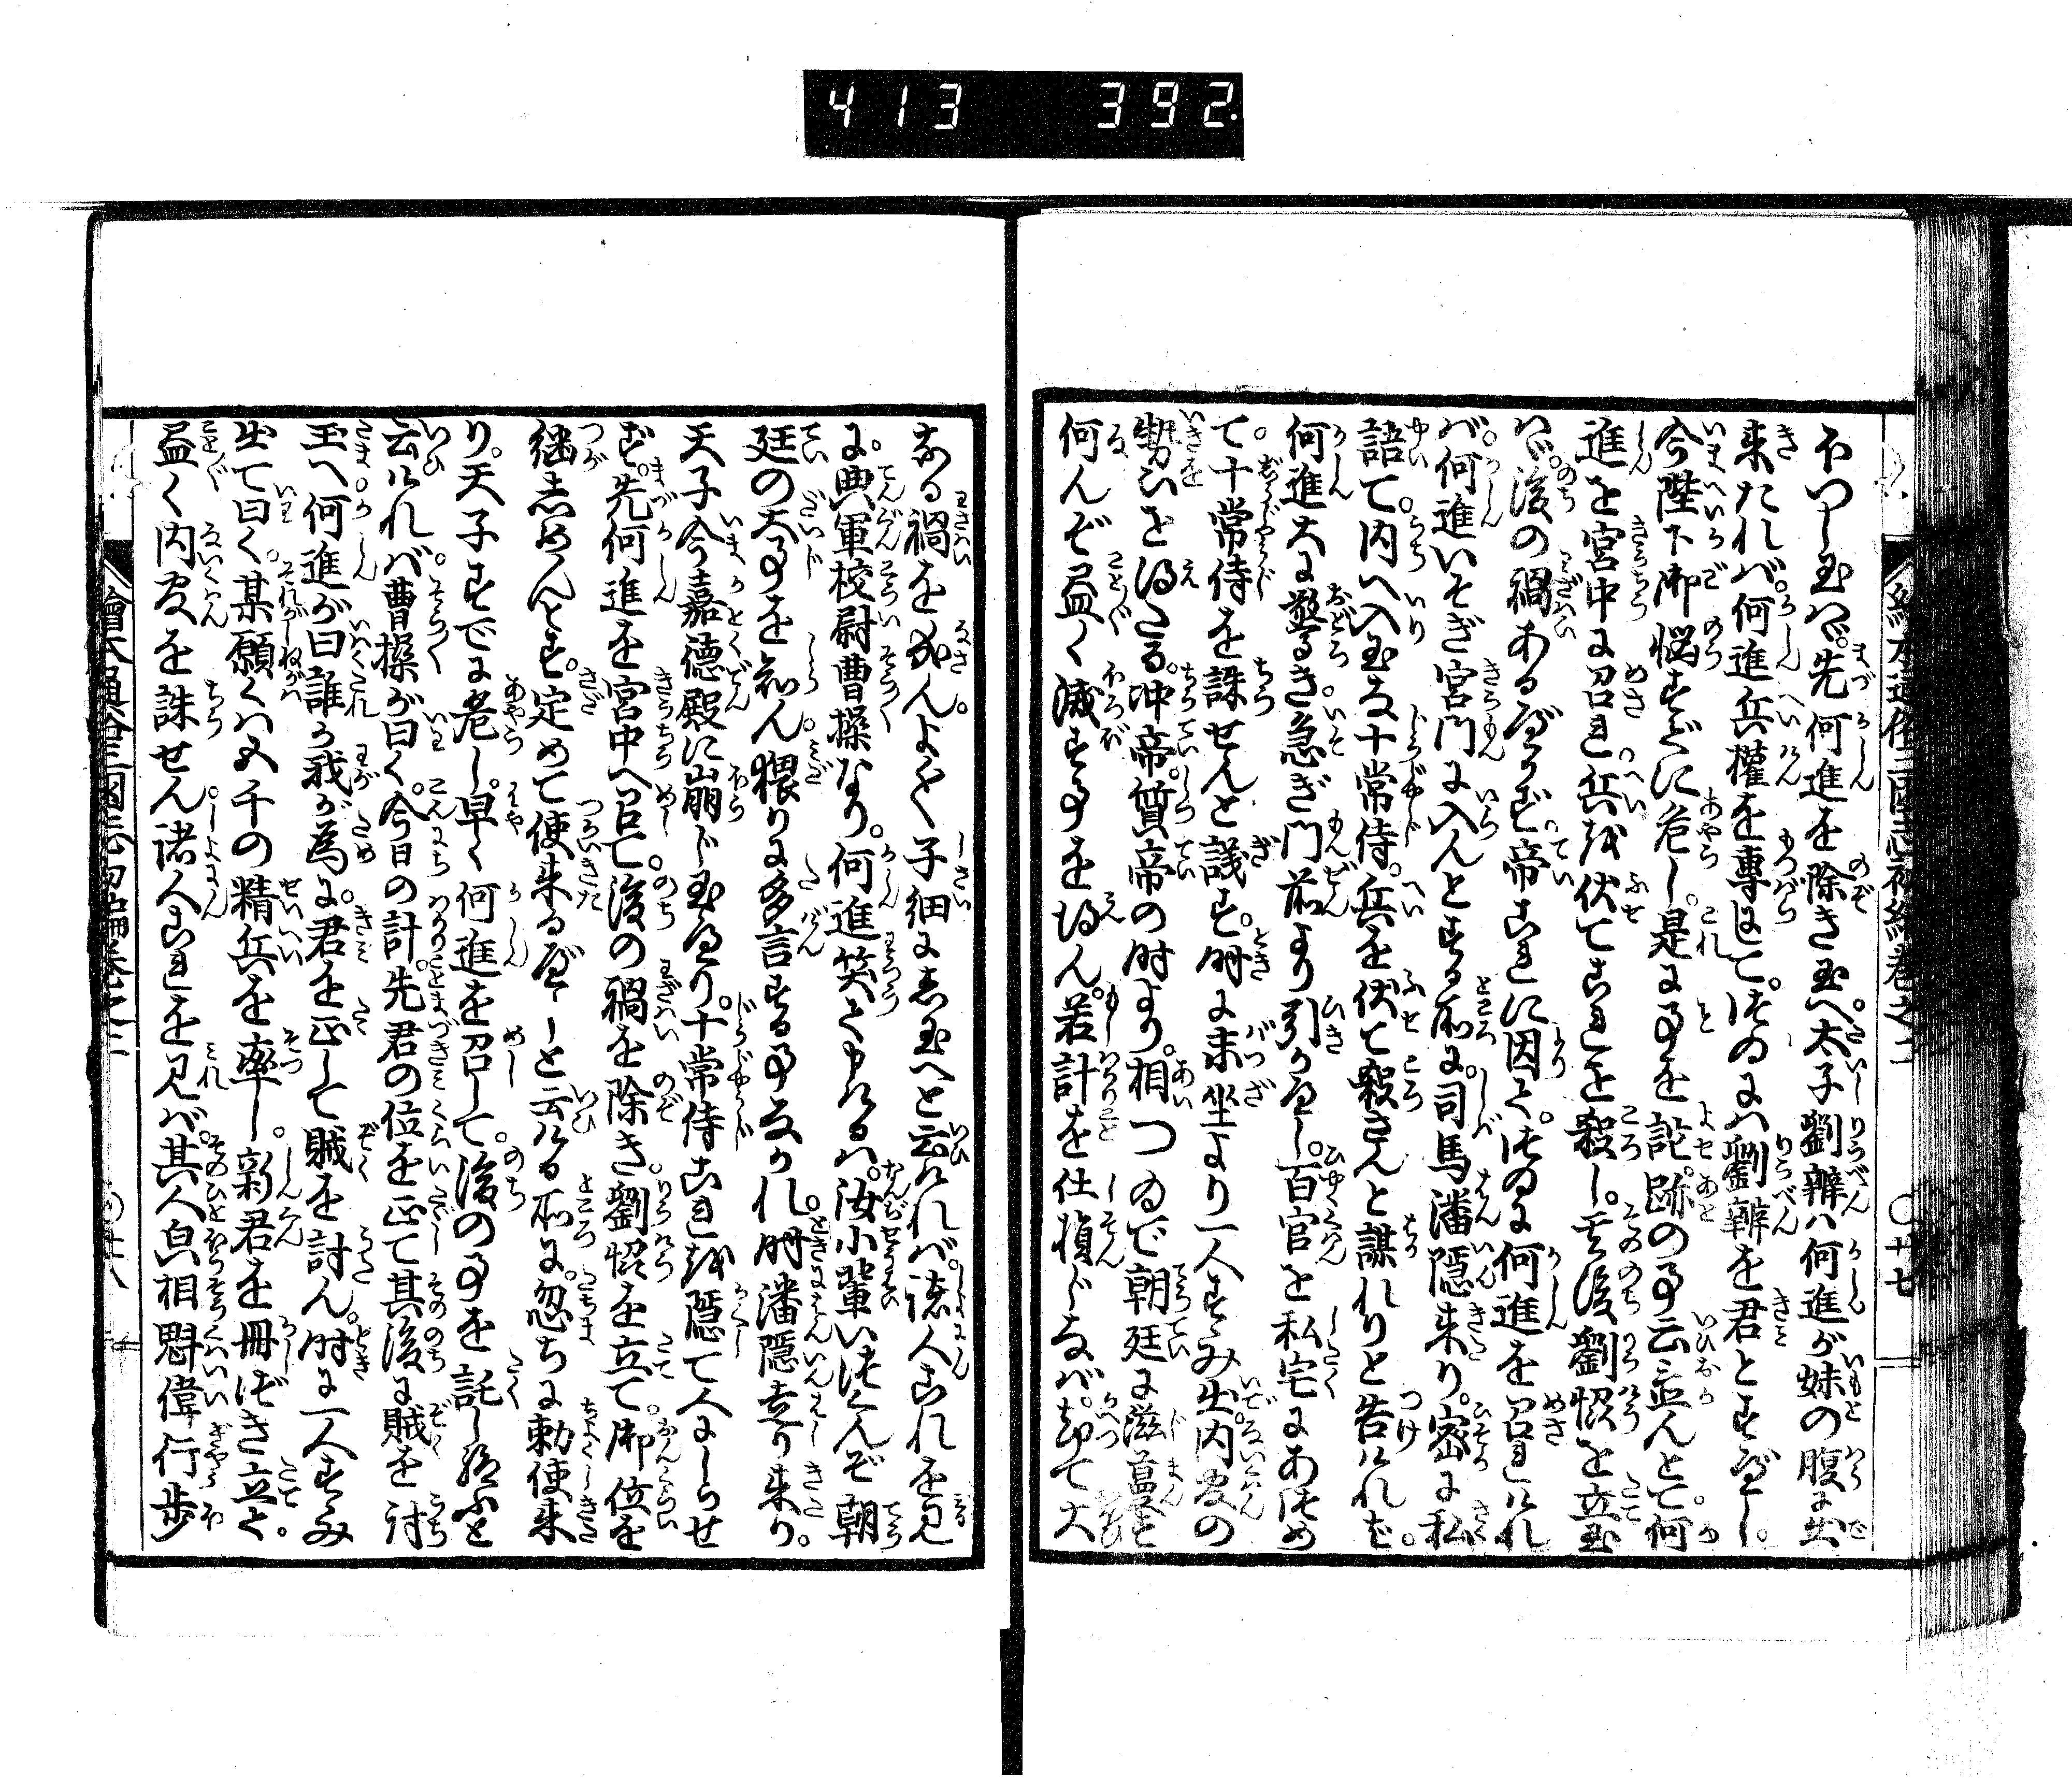 413 392
繪本通俗三國志初編巻之二 〇十七
ふつし玉はゞ。先何進を除き玉へ。太子劉辨は何進が妹の腹に出
来たれば。何進兵權を專にして。つゐには劉辯を君とすべし。
今陛下御悩すでに危し。是に事を託。跡の事云立んとて。何
進を宮中に召れ兵を伏てこれを殺し。其後劉恊を立玉
はゞ。後の禍あるべからず。帝これに因て。つゐに何進を召れけれ
ば。何進いそぎ宮門に入んとする所に。司馬潘隱来り。密に私
語て。内へ入玉な十常侍。兵を伏て殺さんと謀れりと告ければ。
何進大に驚き急ぎ門前より引かへし。百官を私宅にあつめ
て。十常侍を誅せんと議す。時に末坐より一人すゝみ出。内官の
勢ひを得たる。冲帝。質帝の時より。相つゐで朝廷に滋蔓と
何んぞ盡く滅する事を得ん。若計を仕損じなば。却て大
なる禍を成ん。よく〳〵子細にし玉へと云ければ。諸人これを見
に。典軍校尉曹操なり。何進笑て申けるは。汝小輩いづくんぞ朝
廷の大事を知ん。猥りに多言する事なかれ。時に潘隱走り来り。
天子今嘉德殿に崩じ玉へり。十常侍これを隱て人にしらせ
ず。先何進を宮中へ召て。後の禍を除き。劉恊を立て。御位を
繼しめんとす。定めて使来るべしと云ける所に。忽ちに勅使来
り。天子すでに危し。早く何進を召して。後の事を託し給ふと
云ければ。曹操が曰く。今日の計。先君の位を正て其後に賊を討
玉へ何進が曰誰か我が為に。君を正して賊を討ん。時に一人すゝみ
出て曰く。某願くは五千の精兵を率し。新君を冊づき立て。
盡く内官を誅せん。諸人これを見ば。其人皃相魁偉行歩
繪本通俗三國志初編巻之二